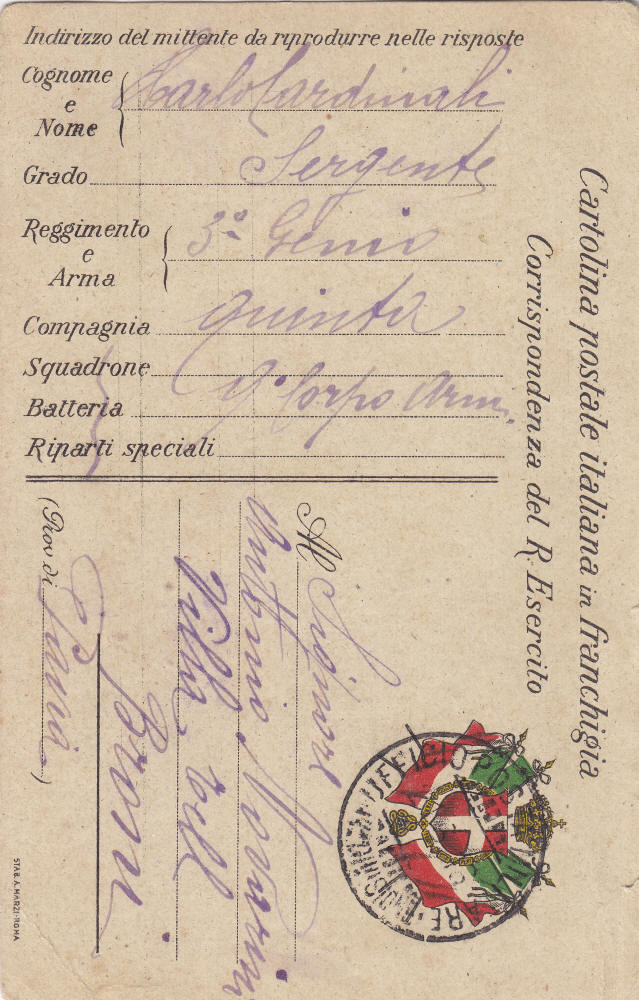 Indirizzo del mittente da riprodurre nelle risposte
Cognome e Nome Carlo Cardinali
Grado Sergente
Reggimento e Arma 3º Genio
Compagnia quinta
Squadrone
Batteria 9º Corpo Arm.
Riparti speciali
Cartolina postale italiana in franchigia
Corrispondenza del R. Esercito
Al Signore
Antonio
Villa
Broni
(Prov di Pavia)
UFFICIO POSTA
STAB. A. MARZI-ROMA